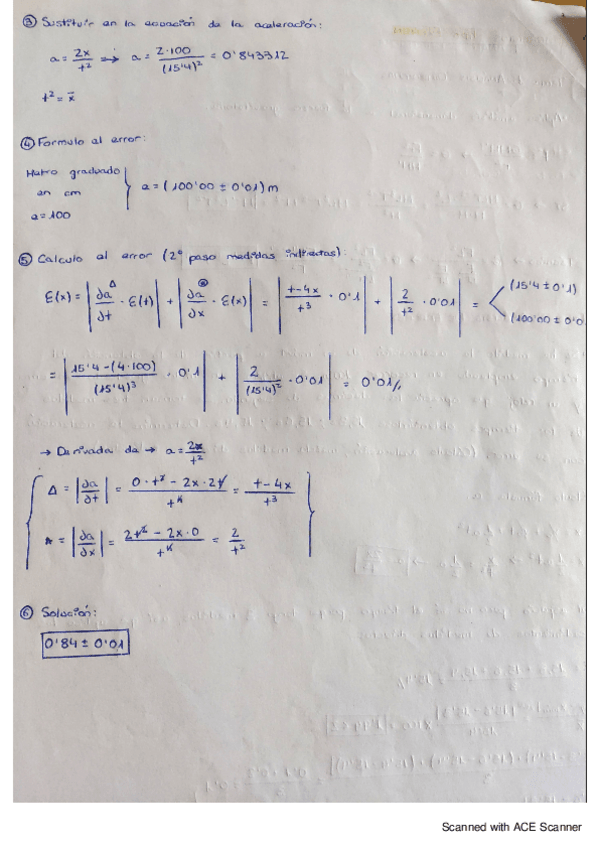 ③ Sustituir en la ecuación de la aceleración:
a = 2x / t² ⟹ a = 2·100 / (15'4)² = 0'843312
t² = x̄
④ Formula al error:
Metro graduado
en cm
a = 100
a = (100'00 ± 0'01) m
⑤ Calculo al error (2º paso medidas indirectas):
ε(x) = |∂a/∂t · ε(t)| + |∂a/∂x · ε(x)| = |t-4x / t³ · 0'1| + |2 / t² · 0'01| = (15'4 ± 0'1)
(100'00 ± 0'0
= |15'4 - (4·100) / (15'4)³ · 0'1| + |2 / (15'4)² · 0'01| = 0'01//
→ Derivada de → a = 2x / t²
Δ = |∂a/∂t| = 0·t² - 2x·2t / t⁴ = t-4x / t³
* = |∂a/∂x| = 2t² - 2x·0 / t⁴ = 2 / t²
⑥ Solución:
0'84 ± 0'01
Scanned with ACE Scanner